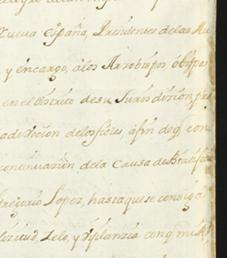 Nueva España, Presidentes de las Au
y encargo, a los Arzobispos, Obispos
en el distrito de su Jurisdicion, pres
a devocion de los fieles, afin de q con
continuacion de la Causa de Beatific
Gregorio Lopez, hasta que se consiga
zelo, y vigilanzia con q mi R